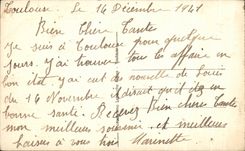 Toulouse. Le 16 Décembre 1941
Bien Chère Tante
Je suis à Toulouse pour quelque
jours. j'ai trouver tous les affaire en
bon état. j'ai eut des nouvelle de
du 14 Novembre disait qu'il était en
bonne santé. Recevez Bien chère Tante
mon meilleur souvenir et meilleurs
baisers à vous tous